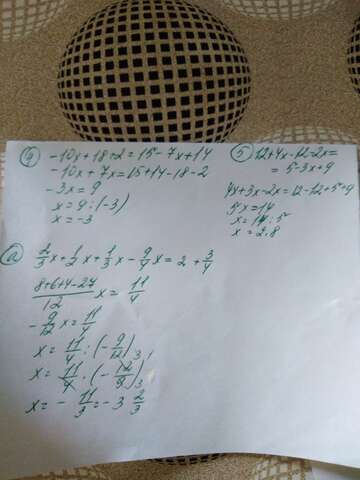 г) -10x+18+2=15-7x+14
-10x+7x=15+14-18-2
-3x=9
x=9:(-3)
x=-3
5) 12+4x-12-2x=
=5-3x+9
4x+3x-2x=12-12+5+9
5x=14
x=14:5
x=2.8
а) 2/3x+1/2x+1/3x-9/4x=2+3/4
8+6+4-27/12 x=11/4
-9/12x=11/4
x=11/4:(-9/12)
x=11/4·(-12/9)
x=-11/3=-3 2/3